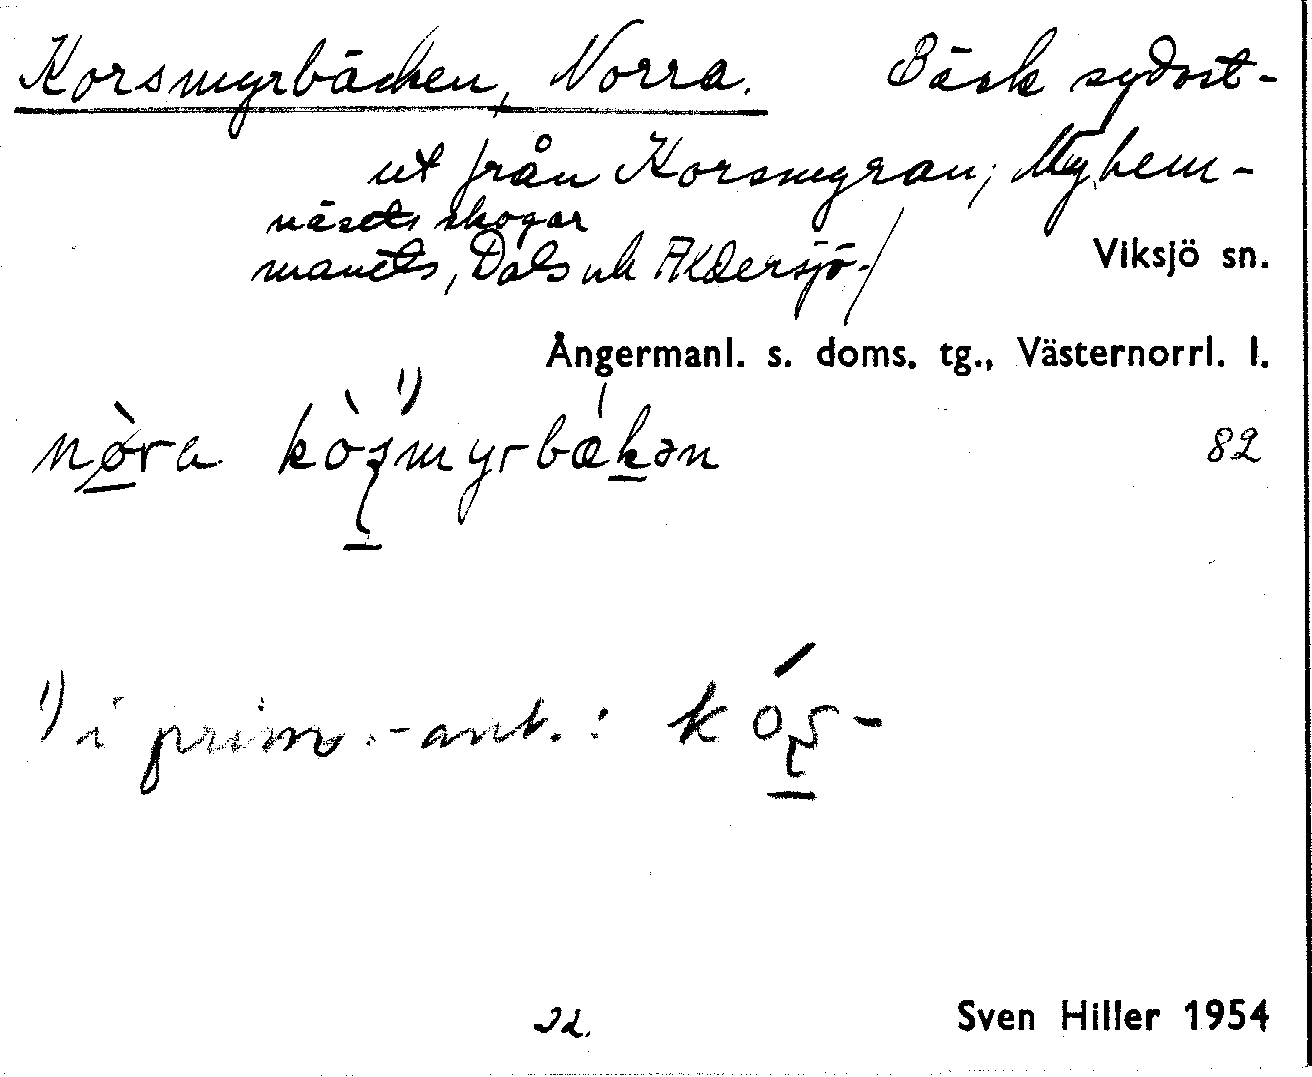 Korsmyrbäcken, Norra. Bäck sydost-
ut från Korsmyran; Myhem-
manets, Dals och Äldersjö-/
näsets skogar
Viksjö sn.
Ångermanl. s. doms. tg., Västernorrl. l.
nø̀ra kòʂ¹⁾myrbækən
82
¹⁾ i prim.-ant.: kóʂ-
Sven Hiller 1954